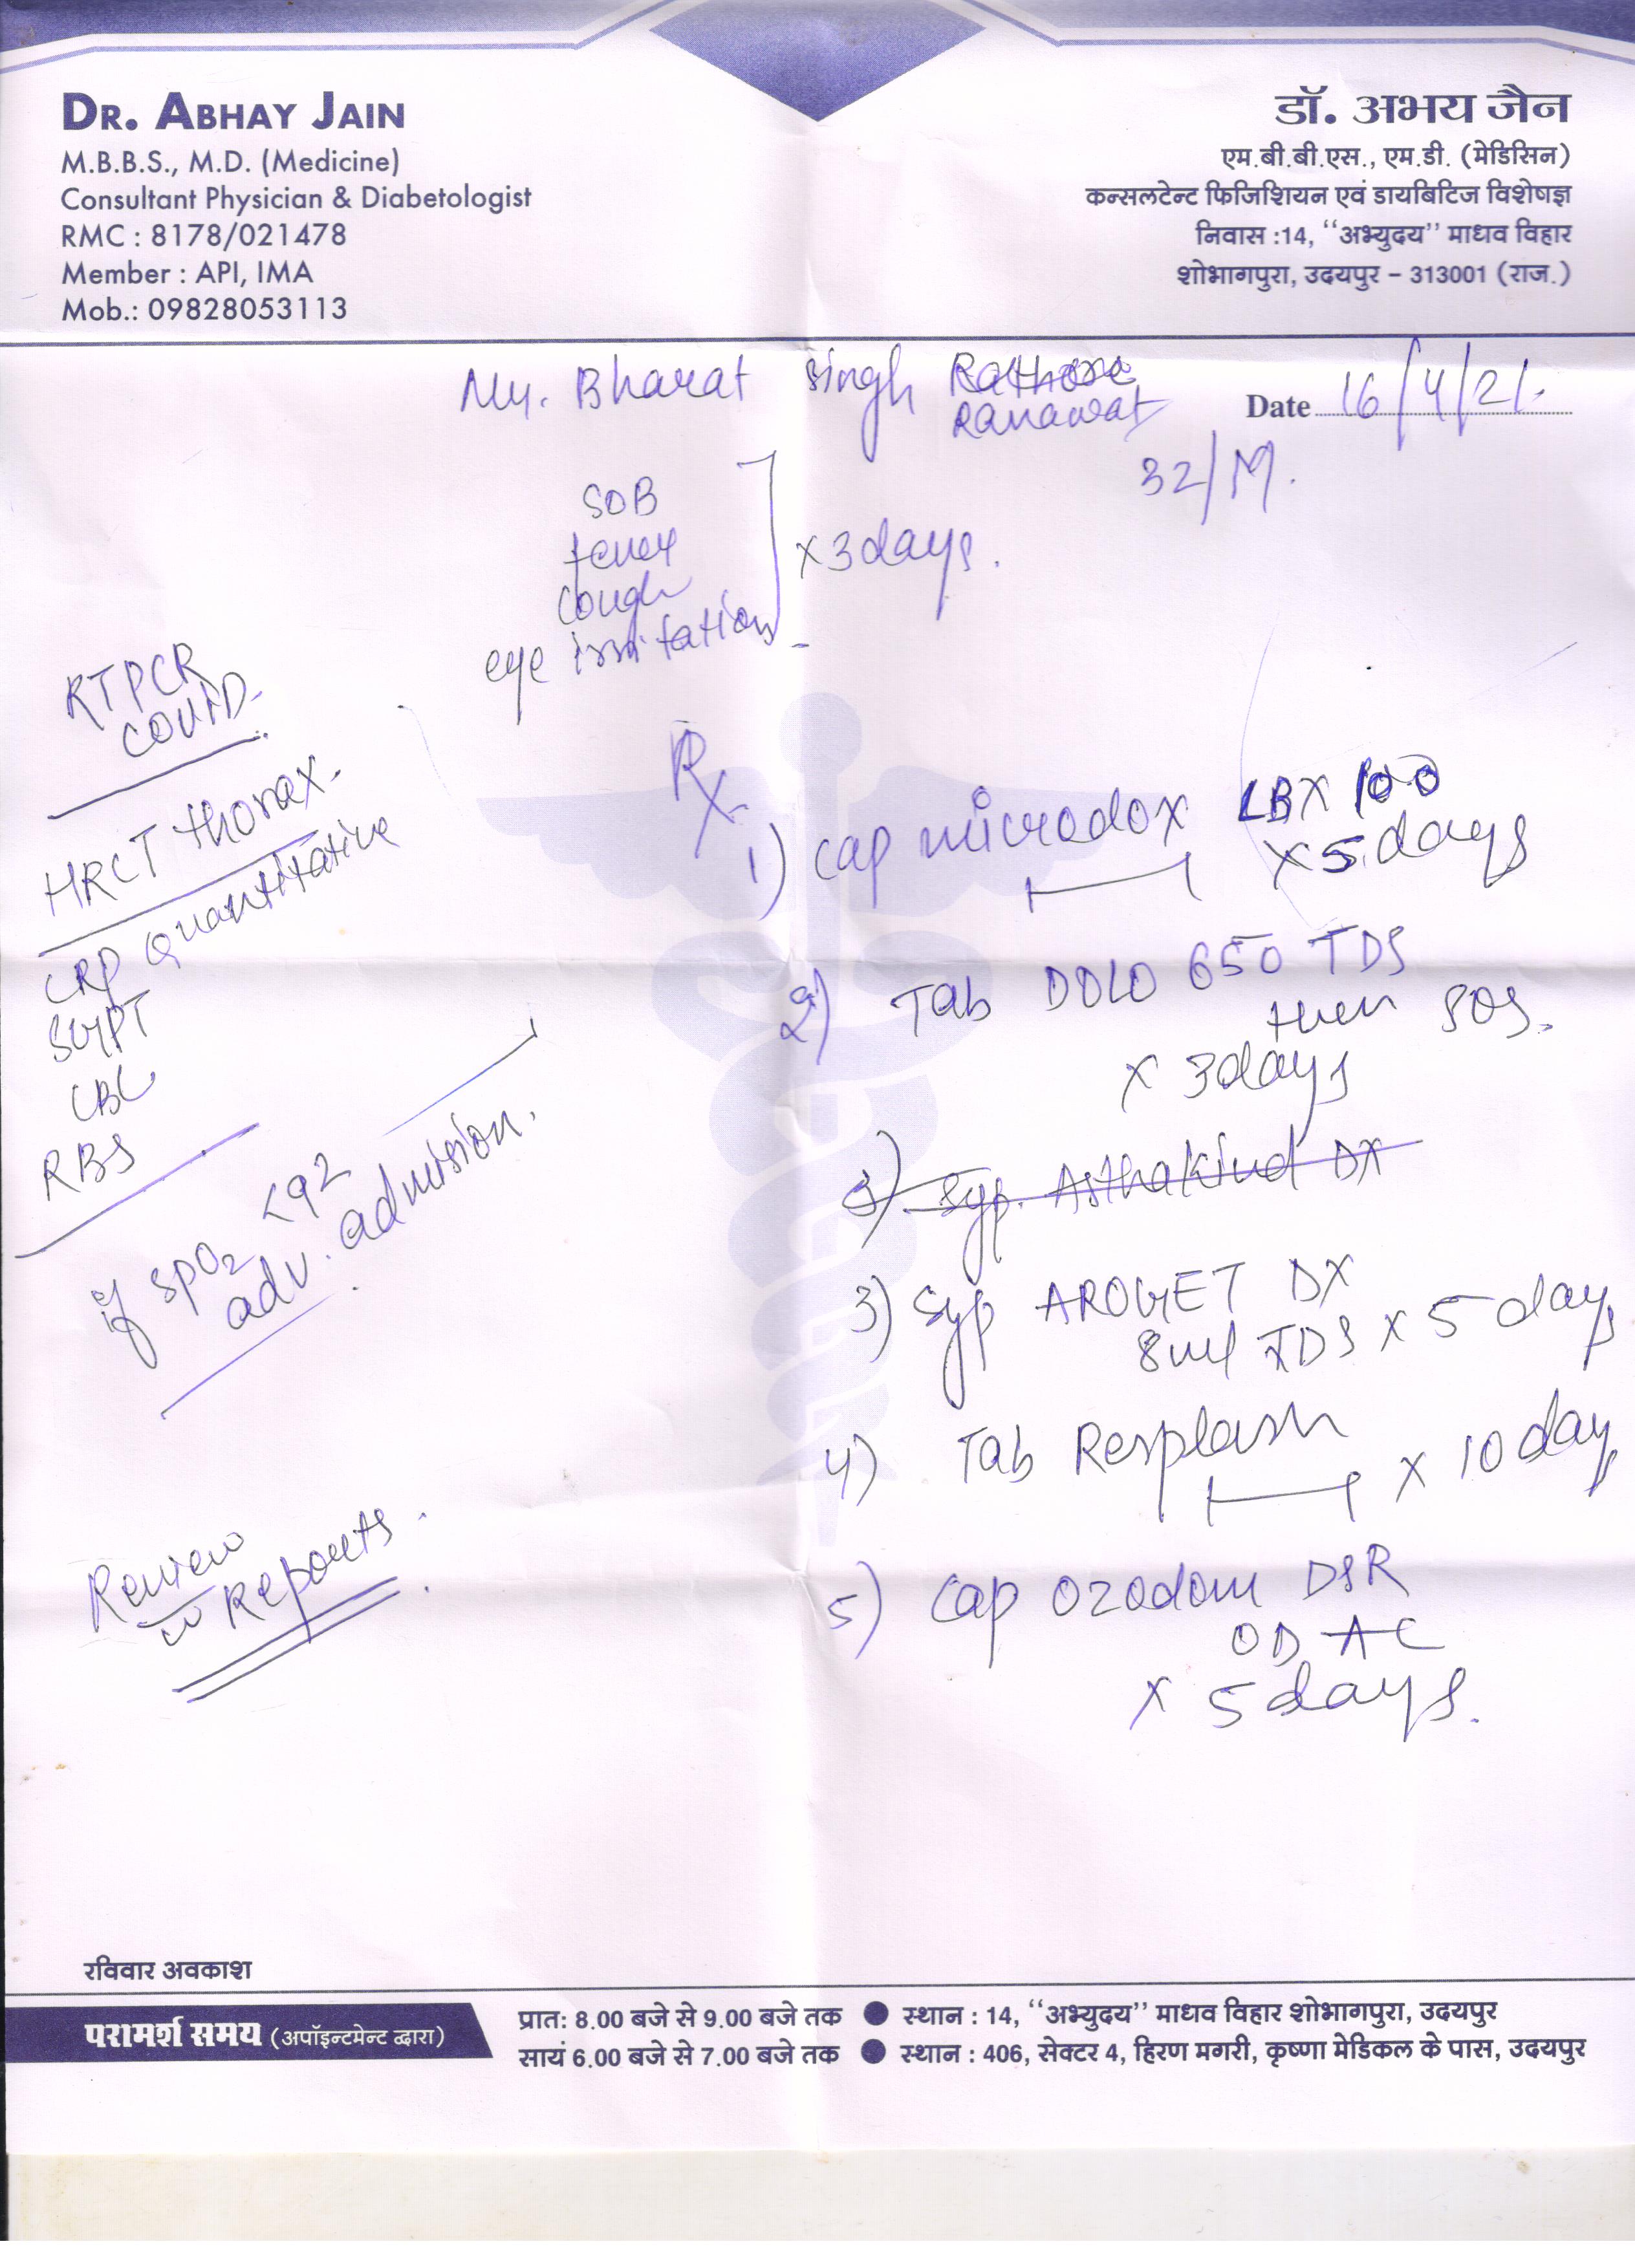 DR. ABHAY JAIN
M.B.B.S., M.D. (Medicine)
Consultant Physician & Diabetologist
RMC : 8178/021478
Member : API, IMA
Mob.: 09828053113
डॉ. अभय जैन
एम.बी.बी.एस., एम.डी. (मेडिसिन)
कन्सलटेन्ट फिजिशियन एवं डायबिटिज विशेषज्ञ
निवास :14, ‘‘अभ्युदय’’ माधव विहार
शोभागपुरा, उदयपुर – 313001 (राज.)
Mr. Bharat Singh Rathore
Ranawat
Date 16/4/21.
32/M.
SOB
fever
cough
eye irritation
x 3 days.
RTPCR
COVID.
HRCT thorax.
CRP Quantitative
SGPT
CBC
RBS
if SpO2 <92
adv. admission.
Review
w Reports.
Rx
1) Cap microdox LBX 100
x 5 days
2) Tab DOLO 650 TDS
then SOS.
x 3 days
3) Syp. Asthakind DX
3) Syp AROGET DX
8ml TDS x 5 day
4) Tab Resplash
x 10 day
5) Cap Ozodom DSR
OD AC
x 5 days.
रविवार अवकाश
परामर्श समय (अपॉइन्टमेन्ट द्वारा)
प्रात: 8.00 बजे से 9.00 बजे तक ● स्थान : 14, ‘‘अभ्युदय’’ माधव विहार शोभागपुरा, उदयपुर
सायं 6.00 बजे से 7.00 बजे तक ● स्थान : 406, सेक्टर 4, हिरण मगरी, कृष्णा मेडिकल के पास, उदयपुर